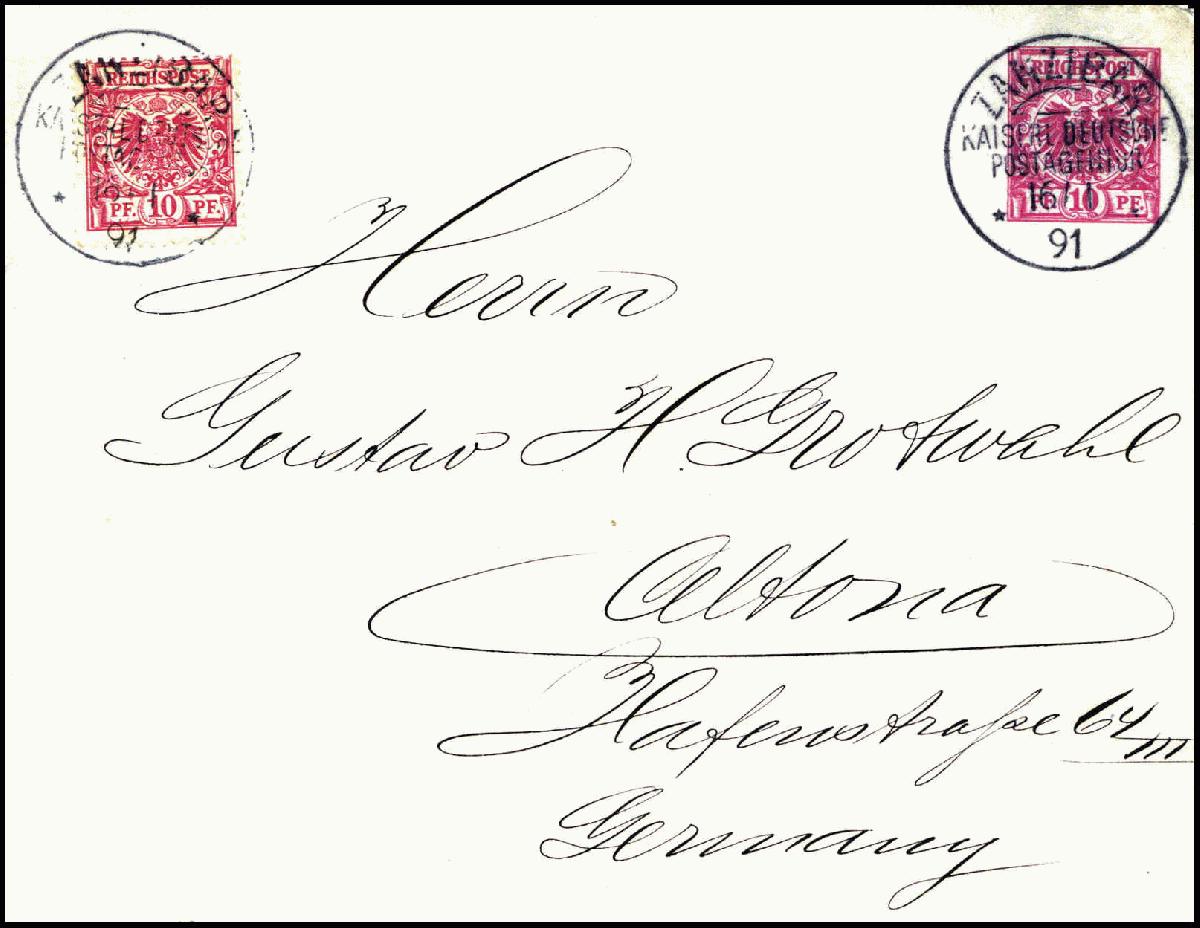 ZANZIBAR
REICHSPOST
PF. 10 PF.
91
ZANZIBAR
REICHSPOST
KAISERL. DEUTSCHE
POSTAGENTUR
16/1
10 PF.
91
Herrn
Gustav H. Grotwahl
Altona
Hafenstraße 64 III
Germany